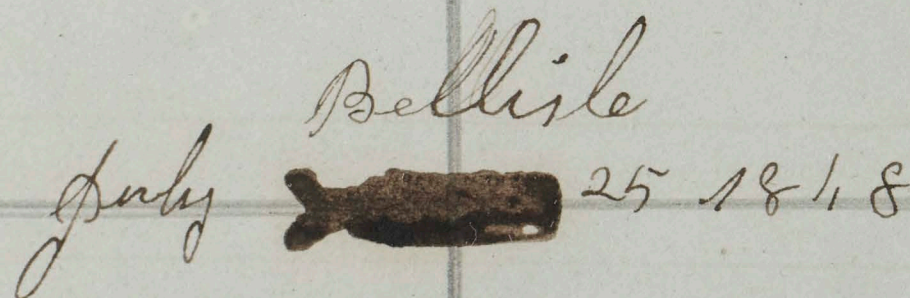 Bellisle
July 25 1848